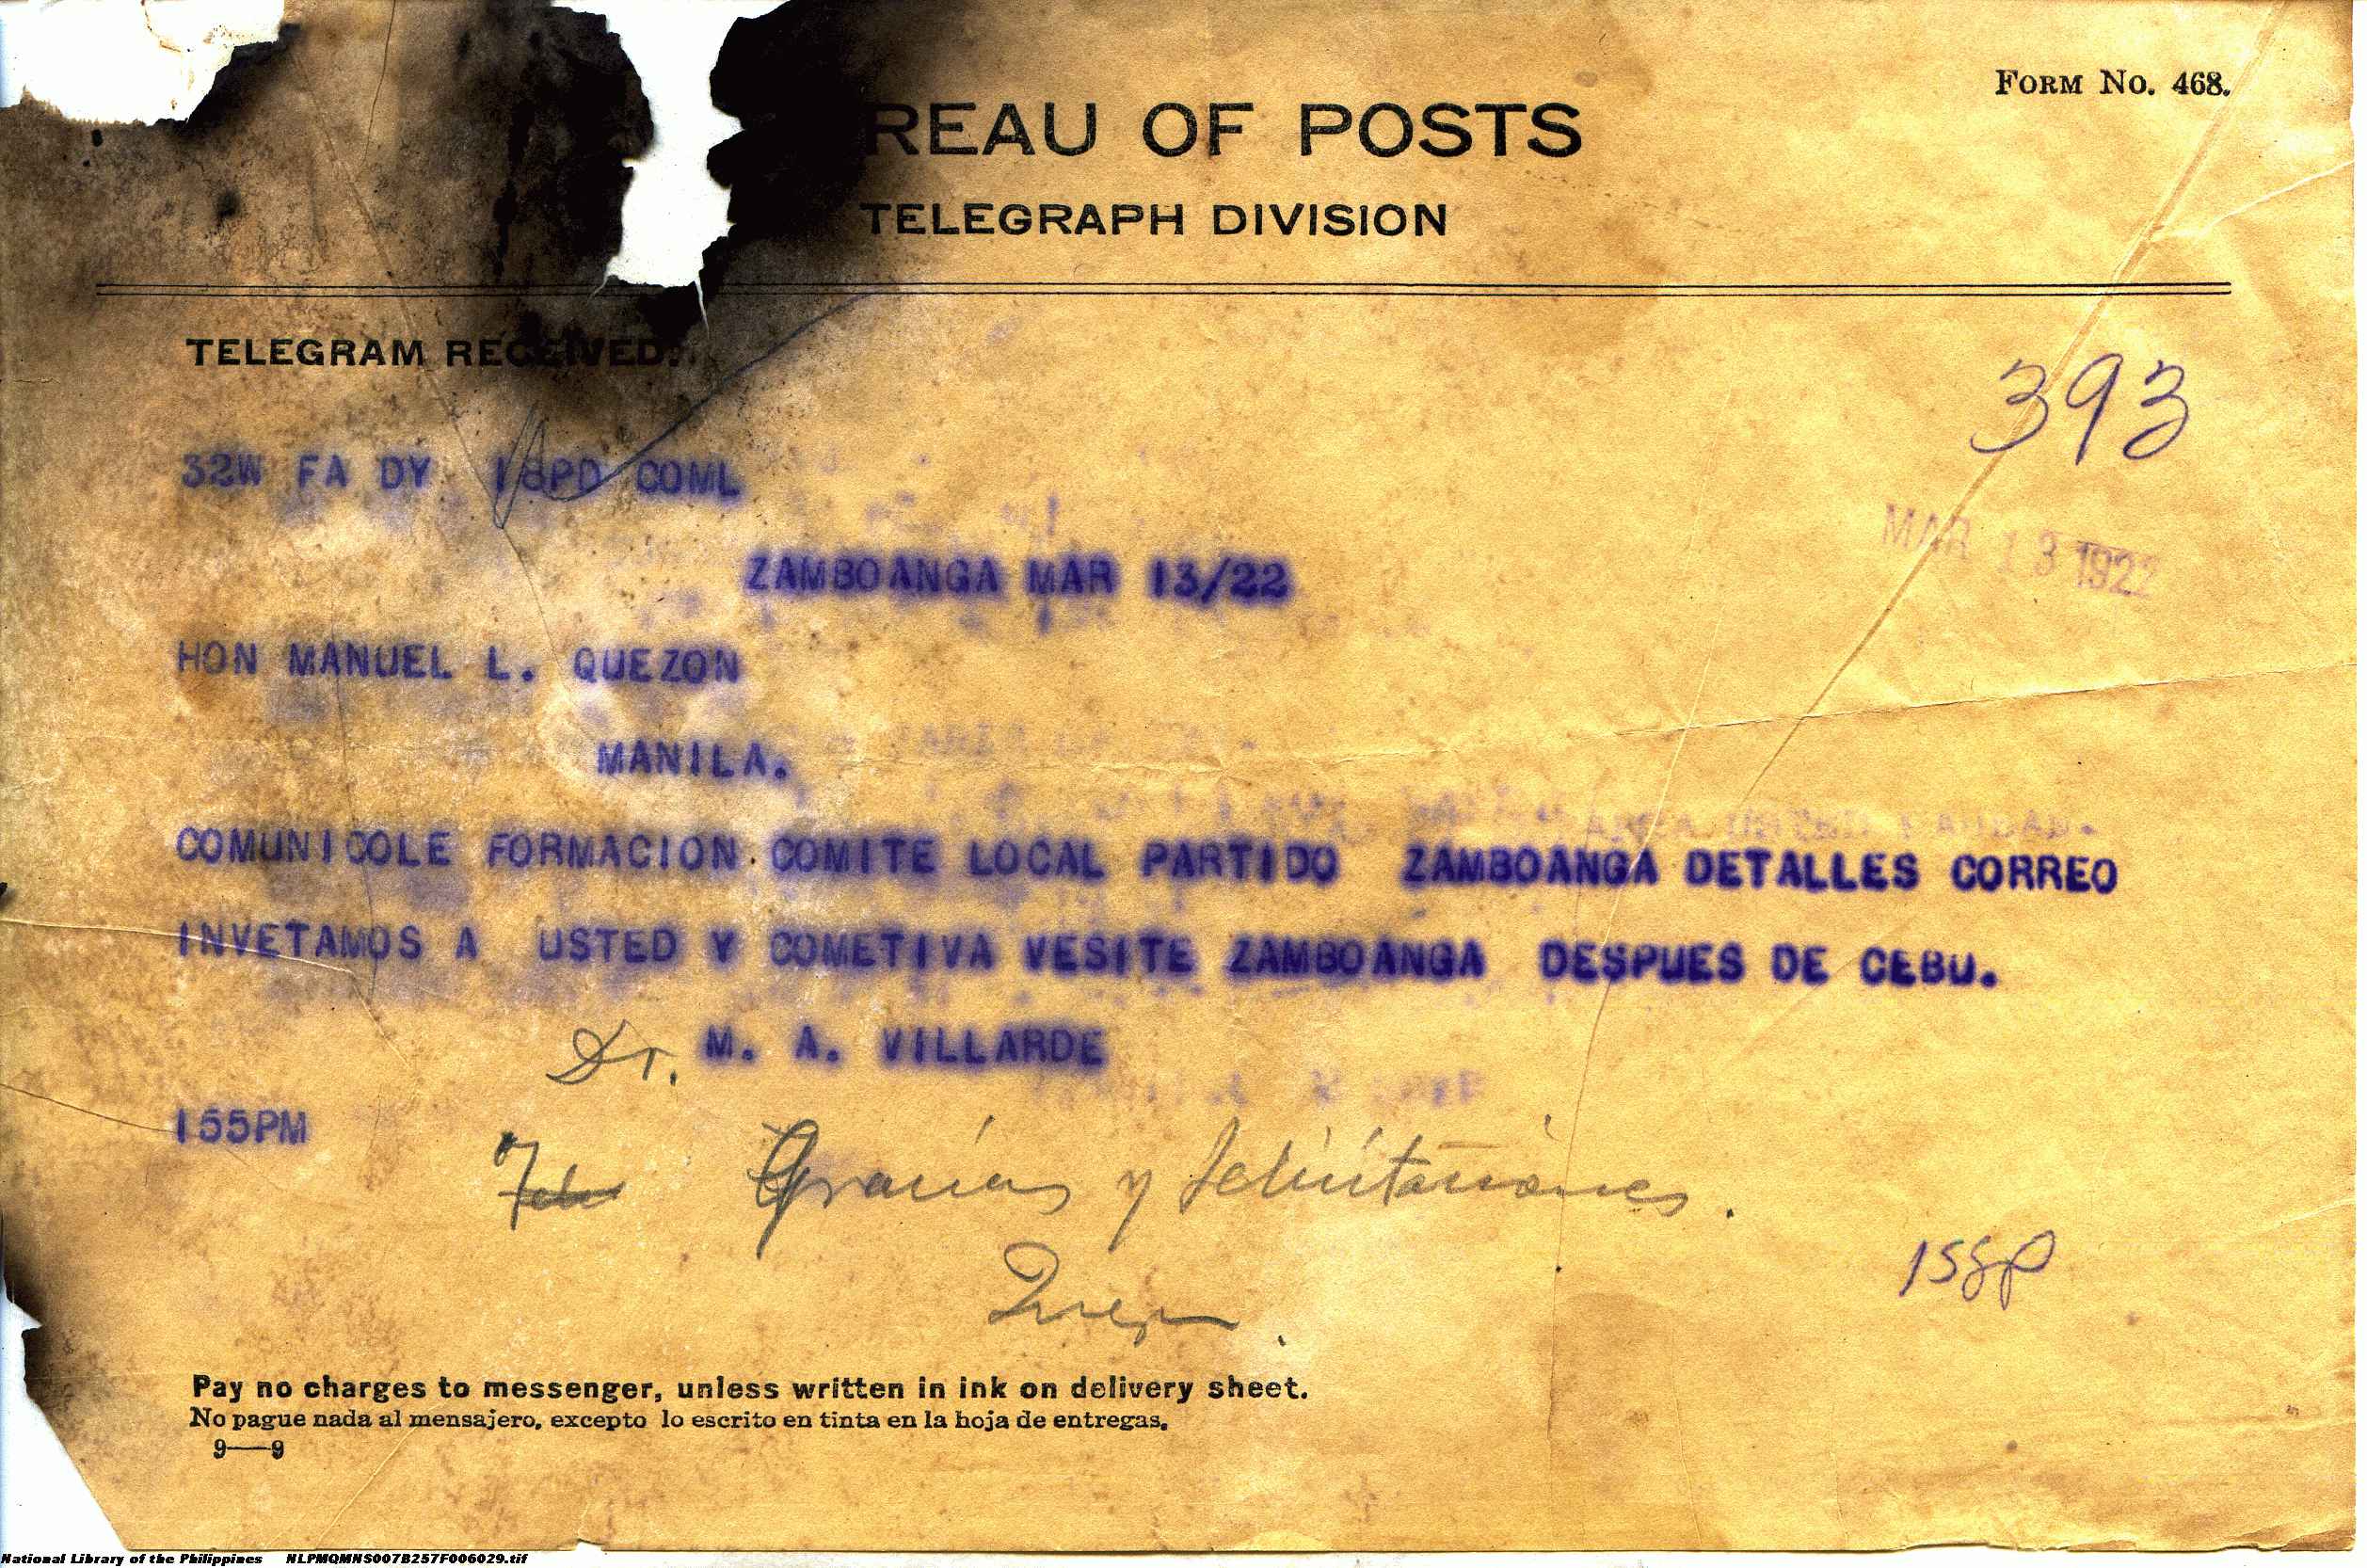 FORM NO. 468.
REAU OF POSTS
TELEGRAPH DIVISION
TELEGRAM RECEIVED.
393
32W FA DY 18PD COML
MAR 13 1922
ZAMBOANGA MAR 13/22
HON MANUEL L. QUEZON
MANILA.
COMUNICOLE FORMACION COMITE LOCAL PARTIDO ZAMBOANGA DETALLES CORREO
INVETAMOS A USTED Y COMETIVA VESITE ZAMBOANGA DESPUES DE CEBU.
Dr. M. A. VILLARDE
155PM
Gracias y felicitaciones.
158P
Quezon
Pay no charges to messenger, unless written in ink on delivery sheet.
No pague nada al mensajero, excepto lo escrito en tinta en la hoja de entregas.
9—9
National Library of the Philippines NLPMQMNS007B257F006029.tif